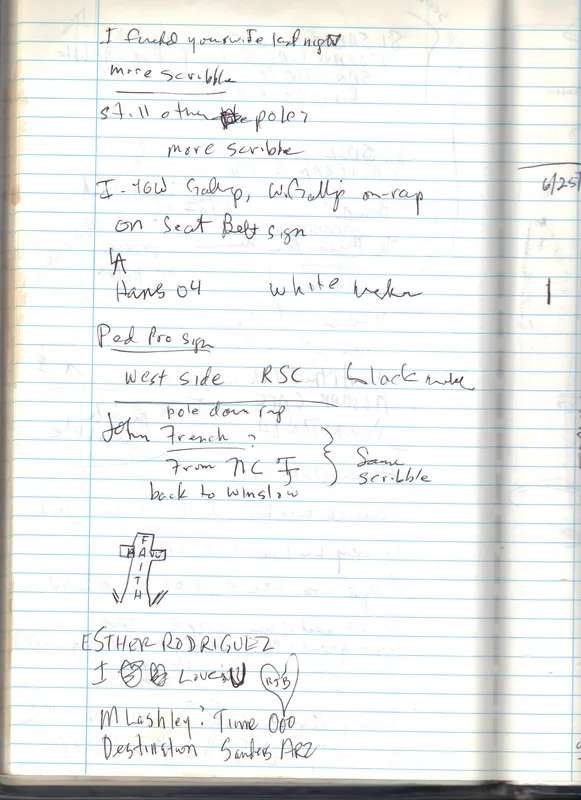 I fuckd your wife last night
more scribble
still other pole?
more scribble
I-40W Gallup, W. Gallup on-rap
on Seat Belt sign
6/25
LA
Hans 04 white
Ped Pro sign
west side RSC black
pole down rap
John French ?
From NC
back to winslow
Same
scribble
F
A
I
T
H
ESTHER RODRIGUEZ
I Loves U RJB
M Lashley : Time 000
Destination Sanders ARZ